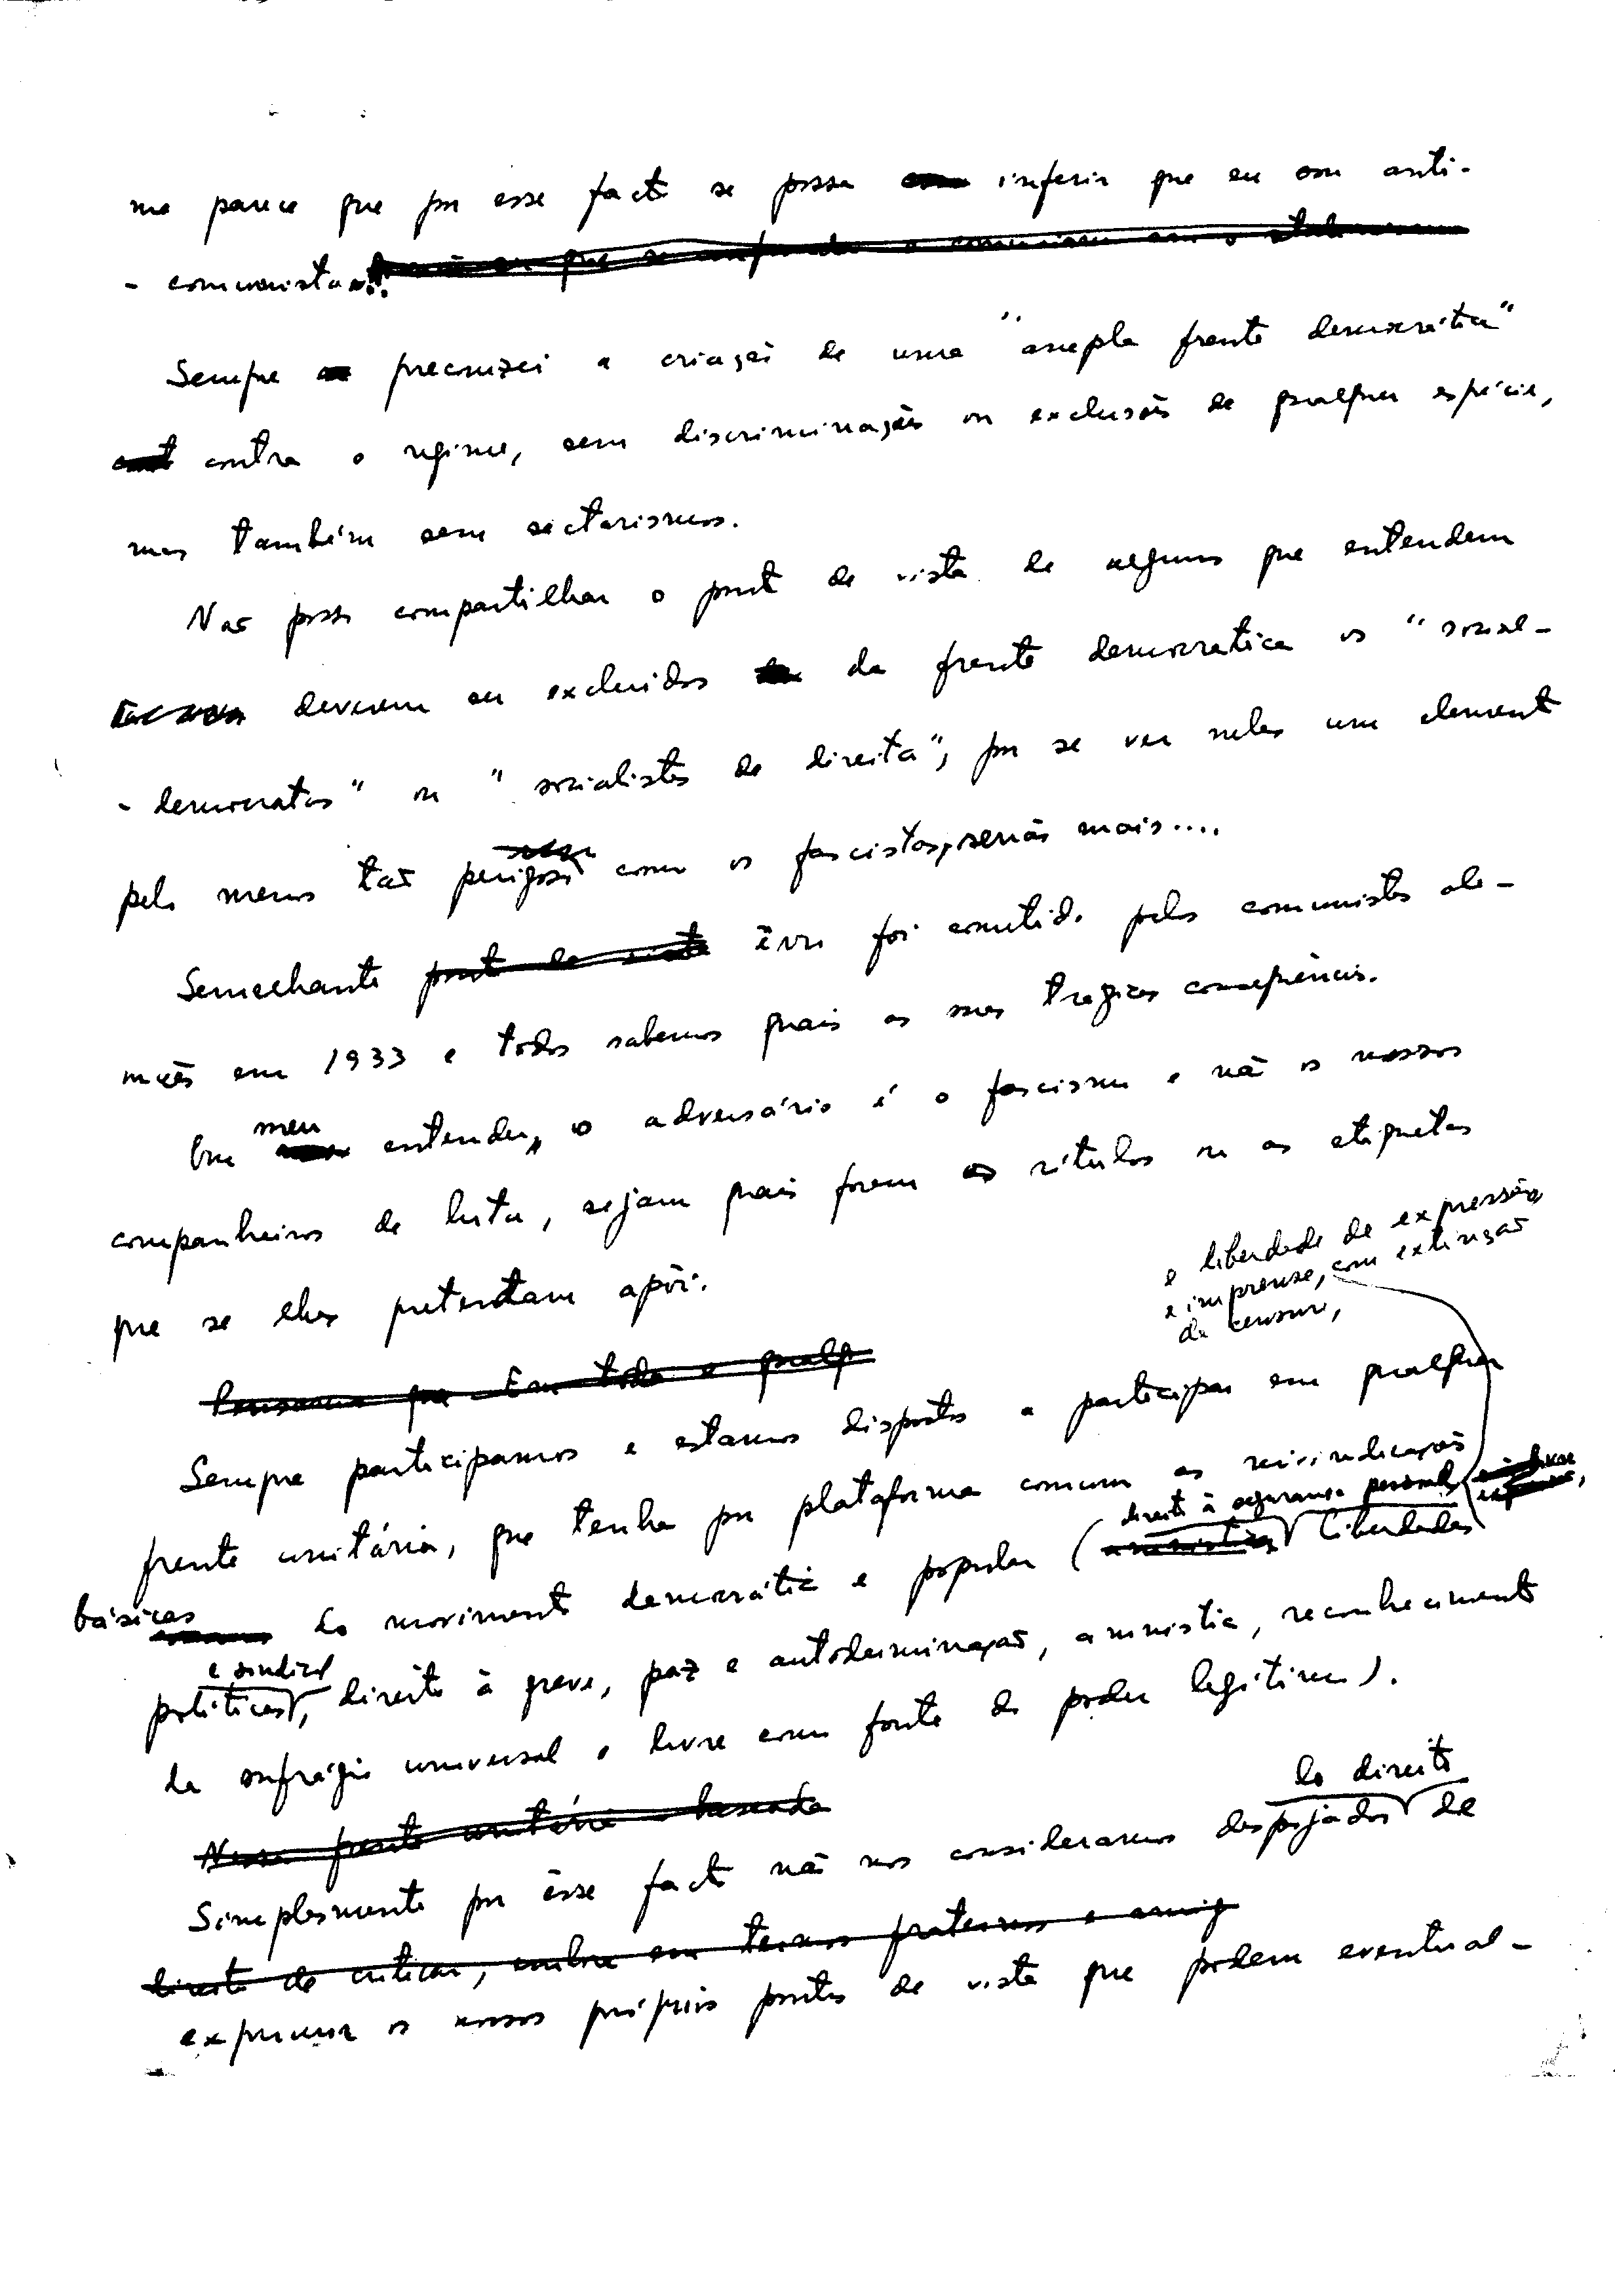 me parece que por esse facto se possa inferir que eu sou anti-
- comunista...
Sempre preconizei a criação de uma "ampla frente democrática"
contra o regime, sem discriminações ou exclusões de qualquer espécie,
mas também sem sectarismos.
Não posso compartilhar o ponto de vista de alguns que entendem
deverem ser excluidos da frente democratica os "social-
- democratas" ou "socialistas de direita", por se ver neles um elemento
pelo menos tão perigoso como os fascistas, senão mais....
Semelhante ponto de vista êrro foi cometido pelos comunistas ale-
mães em 1933 e todos sabemos quais as suas tragicas consequências.
meu
Em entender, o adversário é o fascismo e não os nossos
companheiros de luta, sejam quais forem os rótulos ou as etiquetas
que se lhes pretendam apôr.
e liberdade de expressão
e imprensa, com extinção
da censura,
Pensamos que Em toda e qualq
Sempre participamos e estamos dispostos a participar em qualquer
frente unitária, que tenha por plataforma comum as reivindicações
direito à segurança pessoal,
básicas do movimento democrático e popular (amnistia, liberdades
e sindical
politicas, direito à greve, paz e autodeminação, amnistia, reconhecimento
do sufrágio universal e livre como fonte do poder legítimo).
Nessa frente unitária baseada
do direito
Simplesmente por êsse facto não nos consideramos despojados de
direito de criticar, embora em termos fraternos e amig
exprimir os nossos próprios pontos de vista que podem eventual-